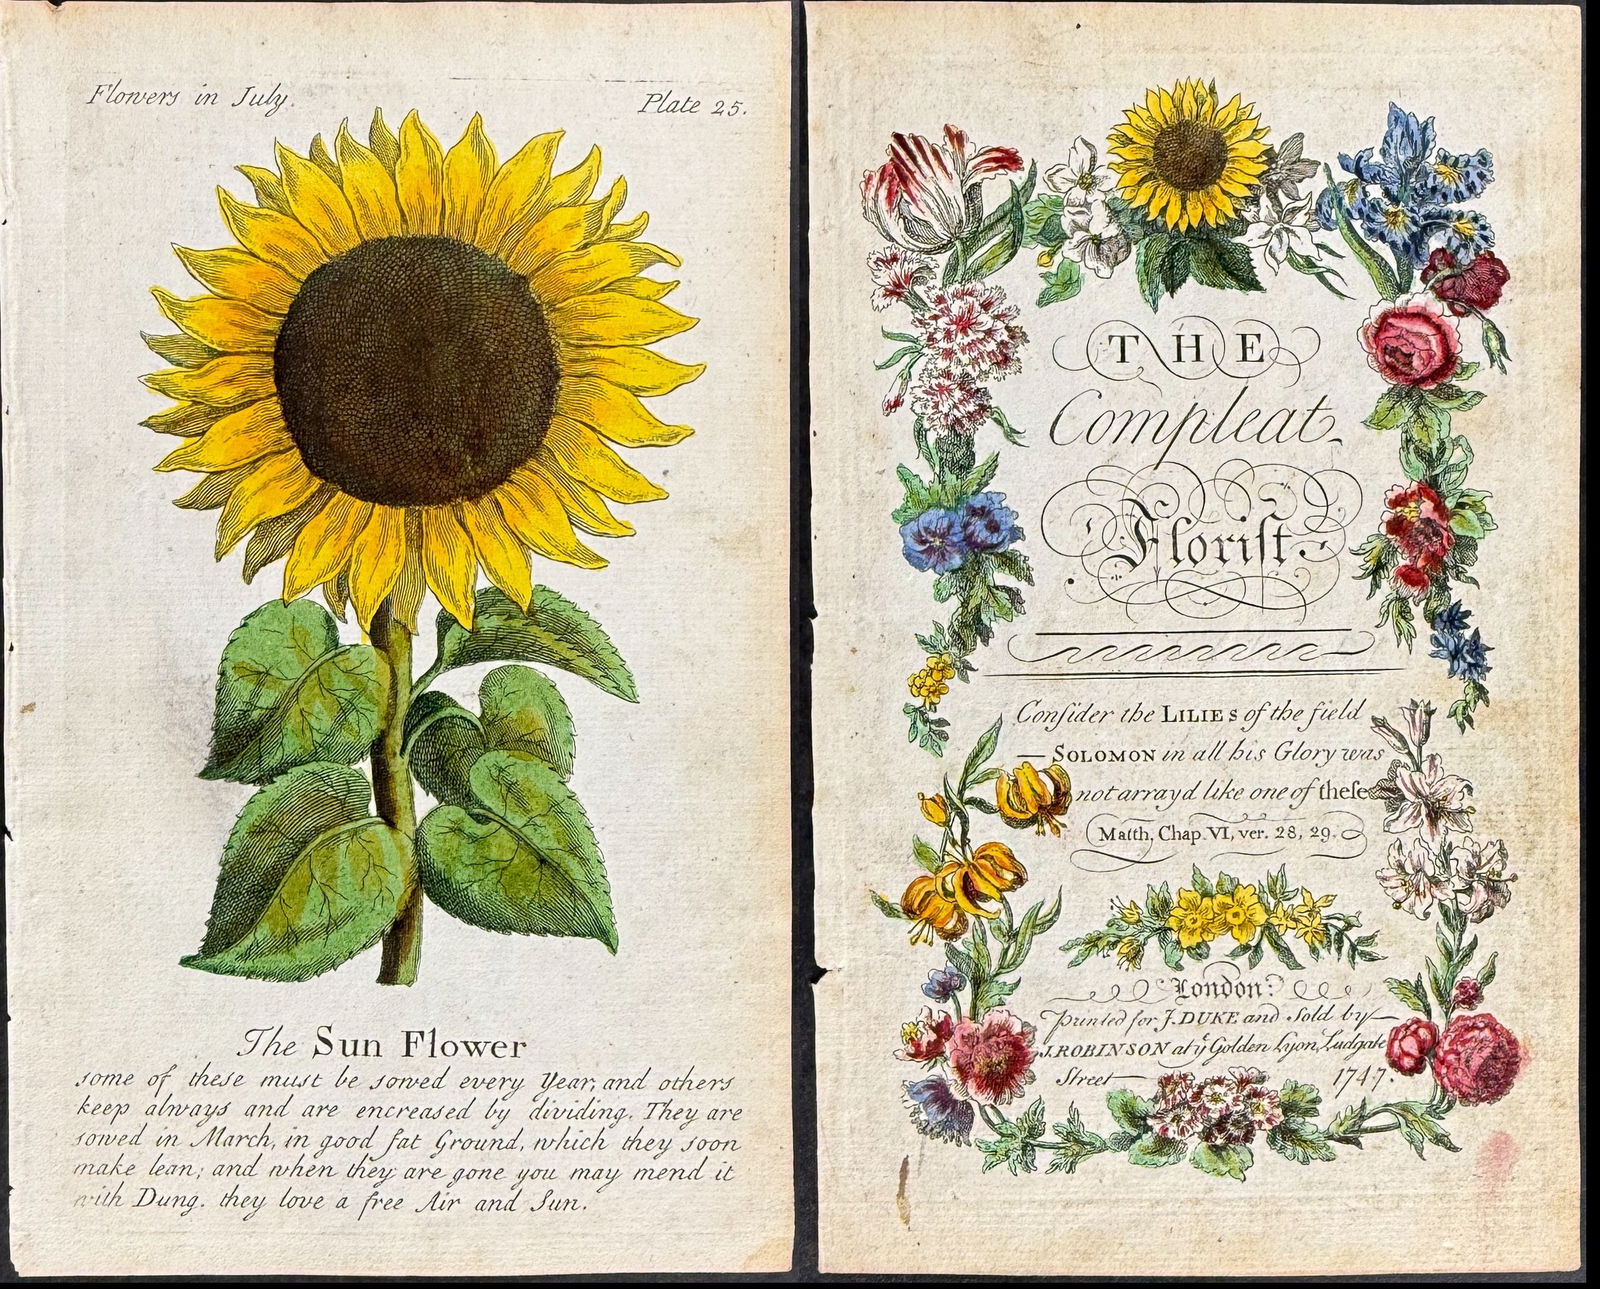 Flowers in July.
Plate 25.
The Sun Flower
some of these must be sowed every Year, and others
keep always and are encreased by dividing. They are
sowed in March, in good fat Ground, which they soon
make lean; and when they are gone you may mend it
with Dung. they love a free Air and Sun.
THE
Compleat
Floriſt
Conſider the LILIES of the field
— SOLOMON in all his Glory was
not arrayd like one of theſe
Matth, Chap. VI, ver. 28, 29.
London:
Printed for J. DUKE and Sold by
J. ROBINSON at yͤ Golden Lyon, Ludgate
Street — 1747.